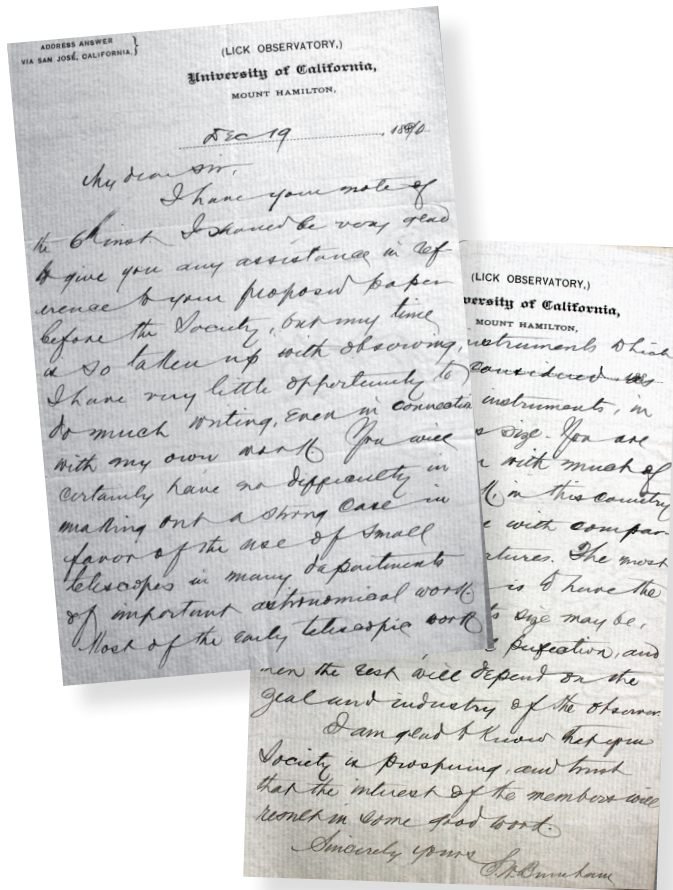 ADDRESS ANSWER
VIA SAN JOSÉ, CALIFORNIA.
(LICK OBSERVATORY,)
University of California,
MOUNT HAMILTON,
Dec 19, 1890
My dear Sir,
I have your note of
the 6th inst. I should be very glad
to give you any assistance in ref
erence to your proposed paper
before the Society, but my time
is so taken up with observing,
I have very little opportunity to
do much writing, even in connection
with my own work. You will
certainly have no difficulty in
making out a strong case in
favor of the use of small
telescopes in many departments
of important astronomical work.
Most of the early telescopic work
(LICK OBSERVATORY,)
versity of California,
MOUNT HAMILTON,
instruments which
considered as
instruments, in
size. You are
with much of
in this country
with compar-
tures. The most
is to have the
size may be,
perfection, and
then the rest will depend on the
zeal and industry of the observer.
I am glad to know that your
Society is prospering, and trust
that the interest of the members will
result in some good work.
Sincerely yours
S.W. Burnham